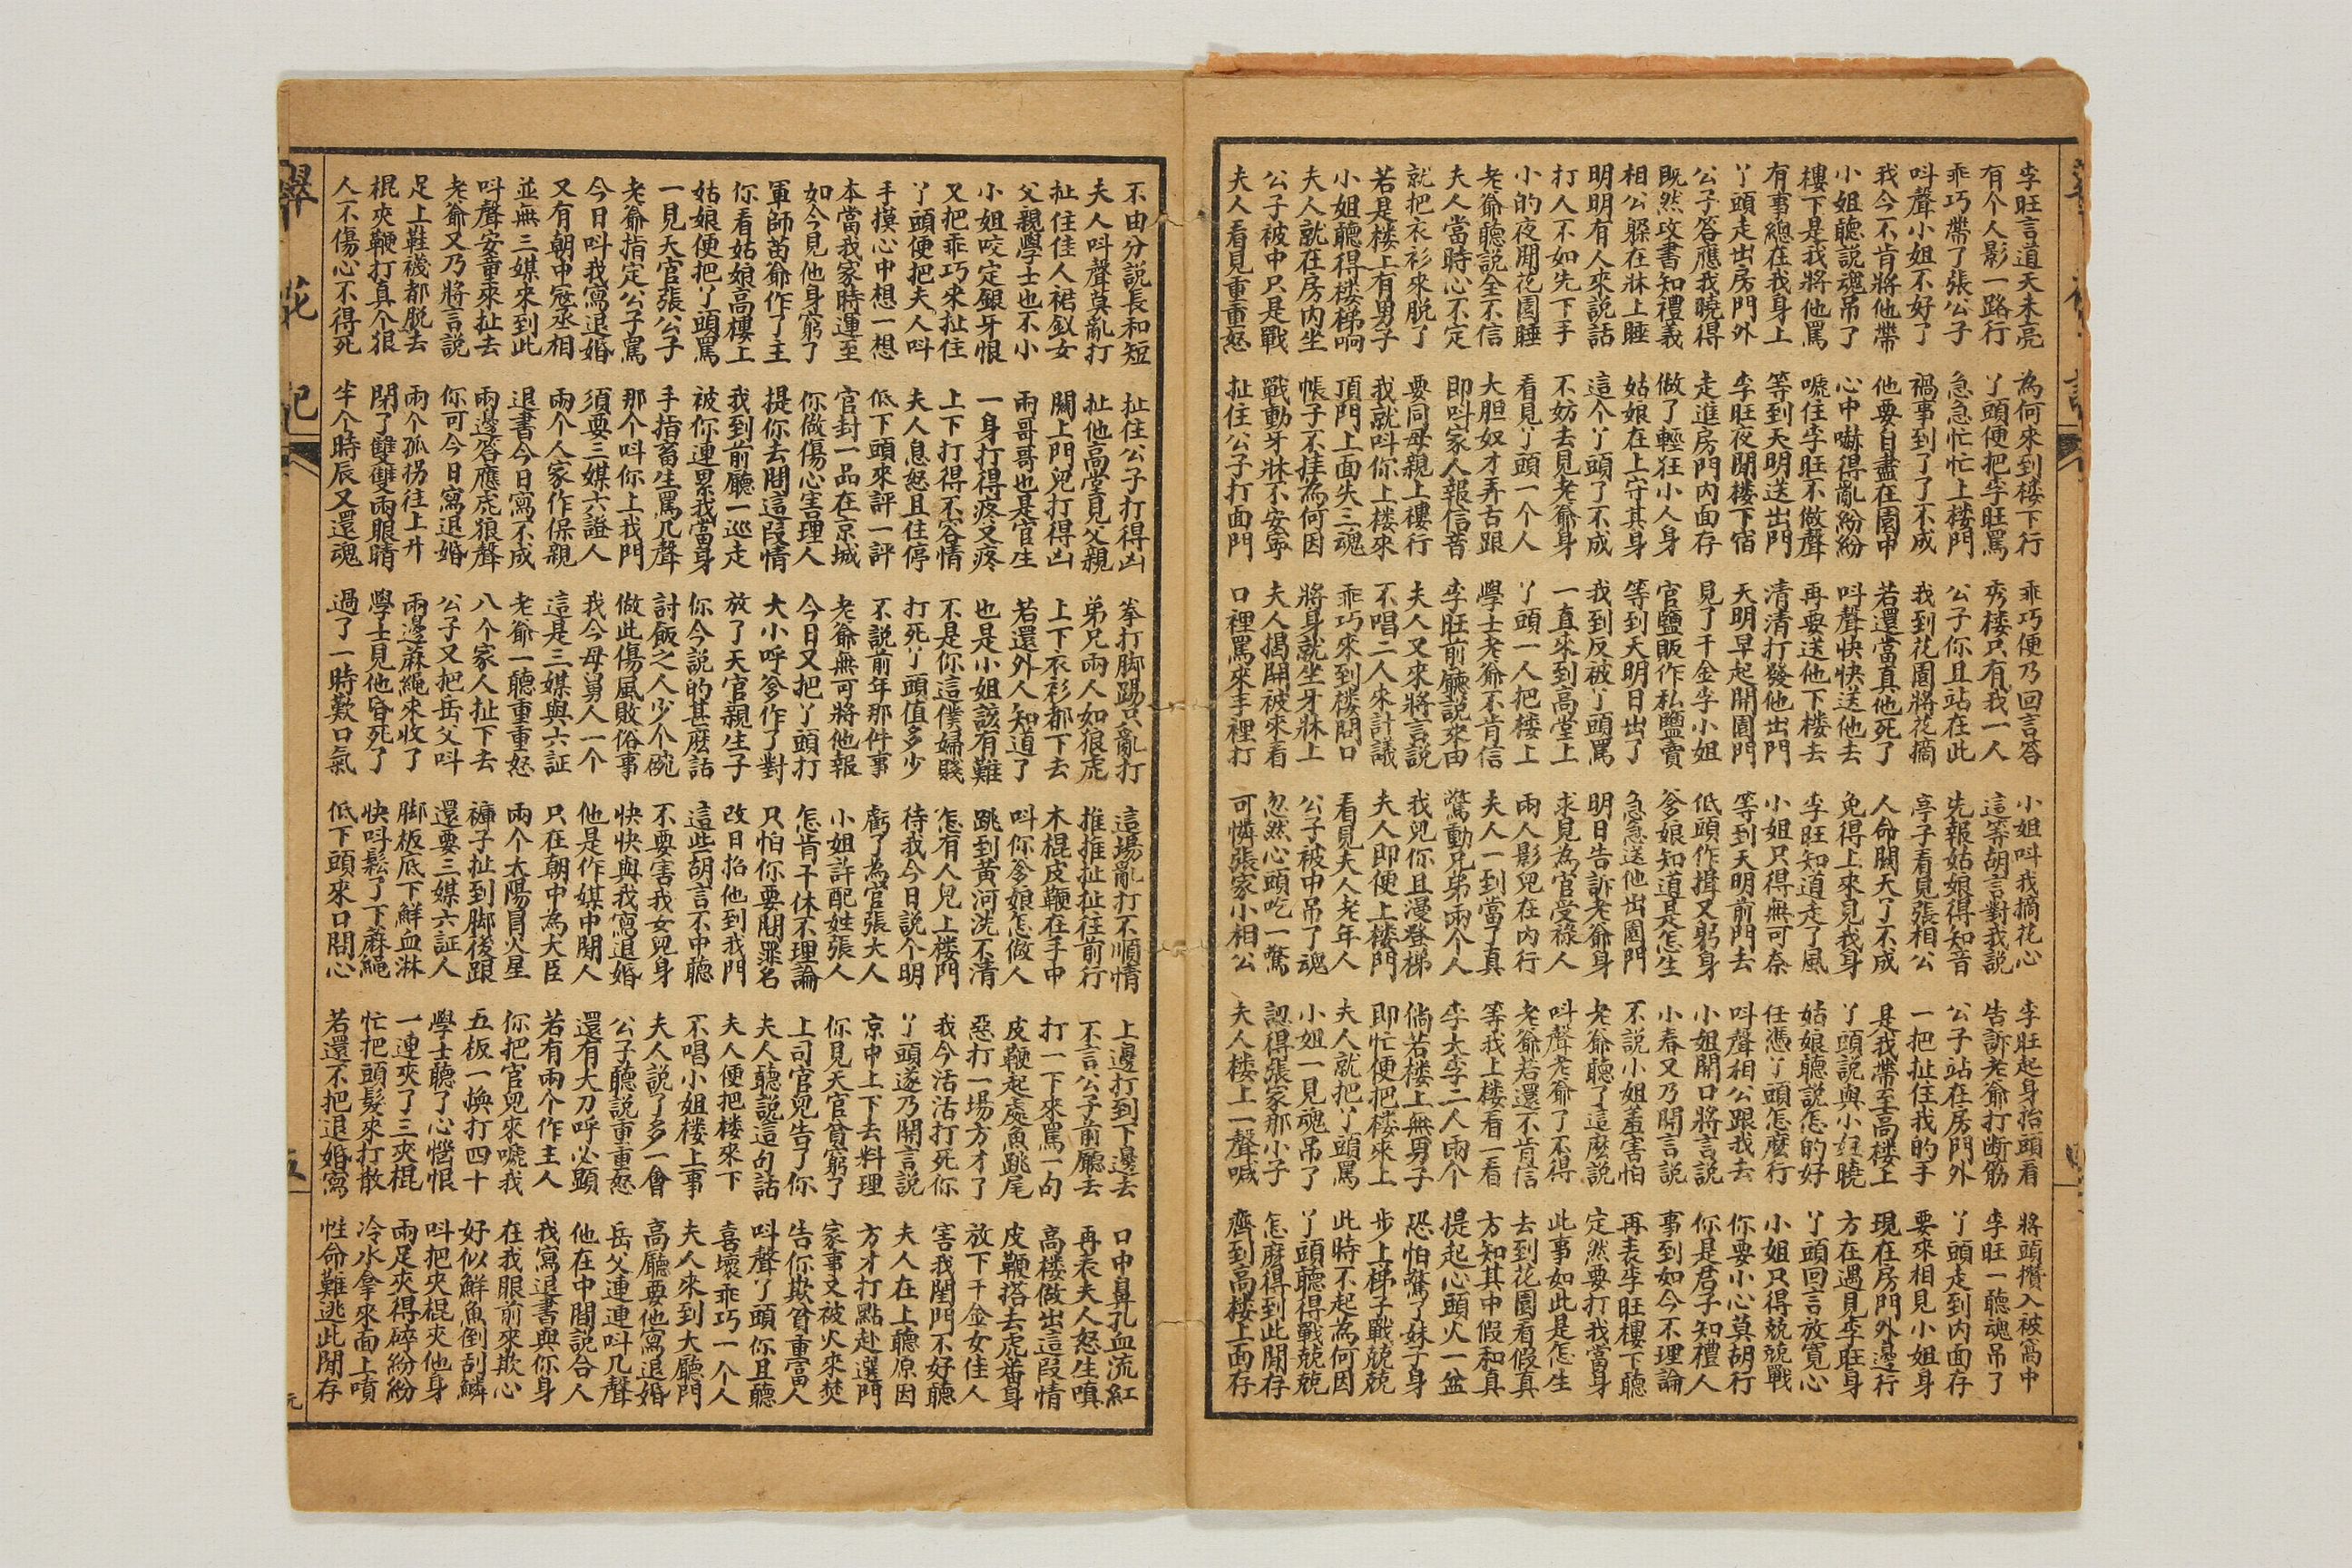 李旺言道天未亮 為何來到楼下行 乖巧便乃回言答 小姐呌我摘花心 李旺起身抬頭看 將頭攢入被窩中
有个人影一路行 丫頭便把李旺罵 秀楼只有我一人 這等胡言對我説 告訴老爺打断筋 李旺一聽魂吊了
乖巧帶了張公子 急急忙忙上楼門 公子你且站在此 先報姑娘得知音 公子站在房門外 丫頭走到内面存
呌聲小姐不好了 禍事到了了不成 我到花園將花摘 亭子看見張相公 一把扯住我的手 要來相見小姐身
我今不肯將他帶 他要自盡在園中 若還當真他死了 人命關天了不成 是我帶至高楼上 現在房門外邊行
小姐聽説魂吊了 心中嚇得亂紛紛 呌聲快快送他去 免得上來見我身 丫頭説與小姐曉 方在遇見李旺身
樓下是我將他罵 唬住李旺不做聲 再要送他下楼去 李旺知道走了風 姑娘聽説怎的好 丫頭回言放寬心
有事總在我身上 等到天明送出門 清清打發他出門 小姐只得無可奈 任憑丫頭怎麽行 小姐只得兢兢戰
丫頭走出房門外 李旺夜間楼下宿 天明早起開園門 等到天明前門去 呌聲相公跟我去 你要小心莫胡行
公子答應我曉得 走進房門内面存 見了千金李小姐 低頭作揖又躬身 小姐開口將言説 你是君子知禮人
既然攻書知禮義 做了輕狂小人身 官鹽販作私鹽賣 爹娘知道是怎生 小春又乃開言説 事到如今不理論
相公躱在牀上睡 姑娘在上守其身 等到天明日出了 急急送他出園門 不説小姐羞害怕 再表李旺樓下聽
明明有人來説話 這个丫頭了不成 我到反被丫頭罵 明日告訴老爺身 老爺聽了這麽説 定然要打我當身
打人不如先下手 不妨去見老爺身 一直來到高堂上 求見為官受祿人 呌聲老爺了不得 此事如此是怎生
小的夜間花園睡 看見丫頭一个人 丫頭一人把楼上 兩人影兒在内行 老爺若還不肯信 去到花園看假真
老爺聽説全不信 大胆奴才弄古跟 學士老爺不肯信 夫人一到當了真 等我上楼看一看 方知其中假和真
夫人當時心不定 即呌家人報信音 李旺前廳説來由 驚動兄弟兩个人 李大李二人兩个 提起心頭火一盆
就把衣衫來脱了 要同母親上樓行 夫人又來將言説 我兒你且漫登梯 倘若楼上無男子 恐怕驚了妹子身
若是楼上有男子 我就呌你上楼來 不唱二人來計議 夫人即便上楼門 即忙便把楼來上 步上梯子戰兢兢
小姐聽得楼梯响 頂門上面失三魂 乖巧來到楼問口 看見夫人老年人 夫人就把丫頭罵 此時不起為何因
夫人就在房内坐 帳子不挂為何因 將身就坐牙牀上 公子被中吊了魂 小姐一見魂吊了 丫頭聽得戰兢兢
公子被中只是戰 戰動牙牀不安寧 夫人揭開被來看 忽然心頭吃一驚 認得張家那小子 怎麽得到此間存
夫人看見重重怒 扯住公子打面門 口裡罵來手裡打 可憐張家小相公 夫人楼上一聲喊 齊到高楼上面存
不由分説長和短 扯住公子打得凶 拳打脚踢只亂打 這場亂打不順情 上邊打到下邊去 口中鼻孔血流紅
夫人呌聲莫亂打 扯他高堂見父親 弟兄兩人如狼虎 推推扯扯往前行 不言公子前廳去 再表夫人怒生嗔
扯住佳人裙釵女 關上門兒打得凶 上下衣衫都下去 木棍皮鞭在手中 打一下來罵一句 高楼做出這段情
父親學士也不小 兩哥哥也是官生 若還外人知道了 呌你爹娘怎做人 皮鞭起處魚跳尾 皮鞭搭去虎畨身
小姐咬定銀牙恨 一身打得疼又疼 也是小姐該有難 跳到黄河洗不清 惡打一場方才了 放下千金女佳人
又把乖巧來扯住 上下打得不容情 不是你這僕婦賤 怎有人兒上楼門 我今活活打死你 害我閨門不好聽
丫頭便把夫人呌 夫人息怒且住停 打死丫頭值多少 待我今日説个明 丫頭遂乃開言説 夫人在上聽原因
手摸心中想一想 低下頭來評一評 不説前年那件事 虧了為官張大人 京中上下去料理 方才打點赴選門
本當我家時運至 官封一品在京城 老爺無可將他報 小姐許配姓張人 你見天官貧窮了 家事又被火來焚
如今見他身窮了 你做傷心害理人 今日又把丫頭打 怎肯干休不理論 上司官兒告了你 告你欺貧重富人
軍師苗爺作了主 提你去問這段情 大小呼爹作了對 只怕你要問罪名 夫人聽説這句話 呌聲丫頭你且聽
你看姑娘高樓上 我到前廳一巡走 放了天官親生子 改日抬他到我門 夫人便把楼來下 喜壞乖巧一个人
姑娘便把丫頭罵 被你連累我當身 你今説的甚麽話 這些胡言不中聽 不唱小姐楼上事 夫人來到大廳門
一見天官張公子 手指畜生罵几聲 討飯之人少个碗 不要害我女兒身 夫人説了多一會 高廳要他寫退婚
老爺指定公子罵 那个呌你上我門 做此傷風敗俗事 快快與我寫退婚 公子聽説重重怒 岳父連連呌几聲
今日呌我寫退婚 須要三媒六證人 我今母舅人一个 他是作媒中間人 還有大刀呼必顕 他在中間説合人
又有朝中寇丞相 兩个人家作保親 這是三媒與六証 只在朝中為大臣 若有兩个作主人 我寫退書與你身
並無三媒來到此 退書今日寫不成 老爺一聽重重怒 兩个太陽冒火星 你把官兒來唬我 在我眼前來欺心
呌聲安童來扯去 兩邊答應虎狼聲 八个家人扯下去 褲子扯到脚後跟 五板一換打四十 好似鮮魚倒刮鱗
老爺又乃將言説 你可今日寫退婚 公子又把岳父呌 還要三媒六証人 學士聽了心懊恨 呌把夾棍夾他身
足上鞋襪都脱去 兩个孤拐往上升 兩邊蔴繩來收了 脚板底下鮮血淋 一連夾了三夾棍 兩足夾得碎紛紛
棍夾鞭打真个狠 閉了雙雙兩眼睛 學士見他昏死了 快呌鬆了下蔴繩 忙把頭髮來打散 冷水拿來面上噴
人不傷心不得死 半个時辰又還魂 過了一時歎口氣 低下頭來口問心 若還不把退婚寫 性命難逃此間存
翠花記 五